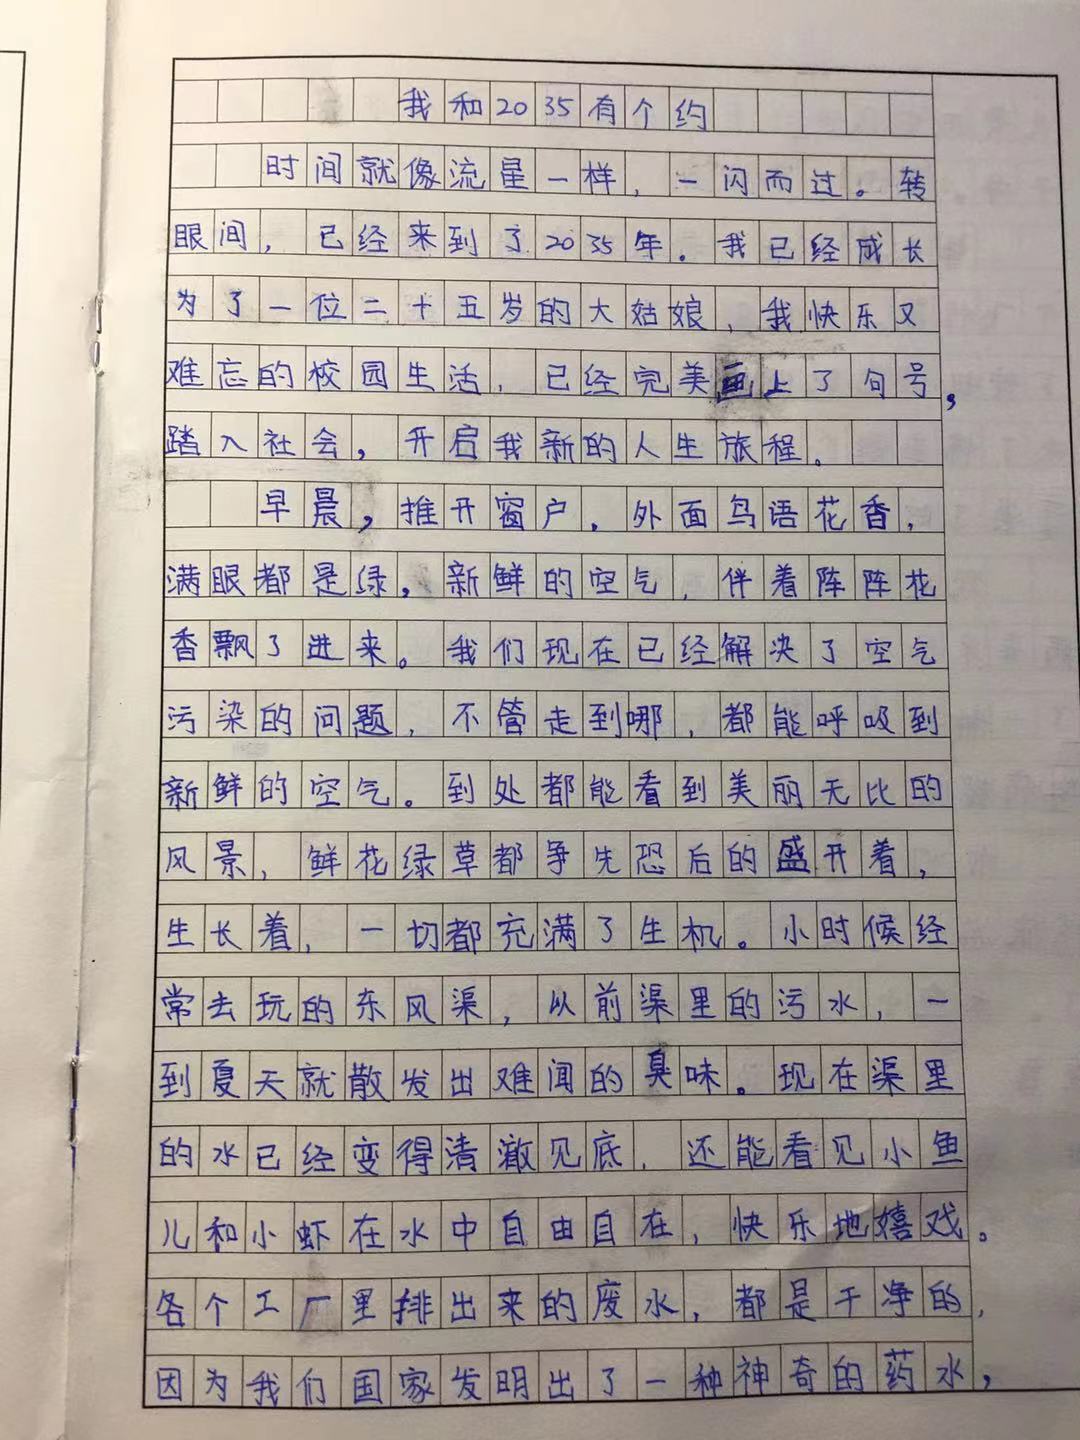 我和2035有个约
时间就像流星一样，一闪而过。转
眼间，已经来到了2035年。我已经成长
为了一位二十五岁的大姑娘，我快乐又
难忘的校园生活，已经完美画上了句号，
踏入社会，开启我新的人生旅程。
早晨，推开窗户，外面鸟语花香，
满眼都是绿，新鲜的空气，伴着阵阵花
香飘了进来。我们现在已经解决了空气
污染的问题，不管走到哪，都能呼吸到
新鲜的空气。到处都能看到美丽无比的
风景，鲜花绿草都争先恐后的盛开着，
生长着，一切都充满了生机。小时候经
常去玩的东风渠，以前渠里的污水，一
到夏天就散发出难闻的臭味。现在渠里
的水已经变得清澈见底，还能看见小鱼
儿和小虾在水中自由自在，快乐地嬉戏。
各个工厂里排出来的废水，都是干净的，
因为我们国家发明出了一种神奇的药水，